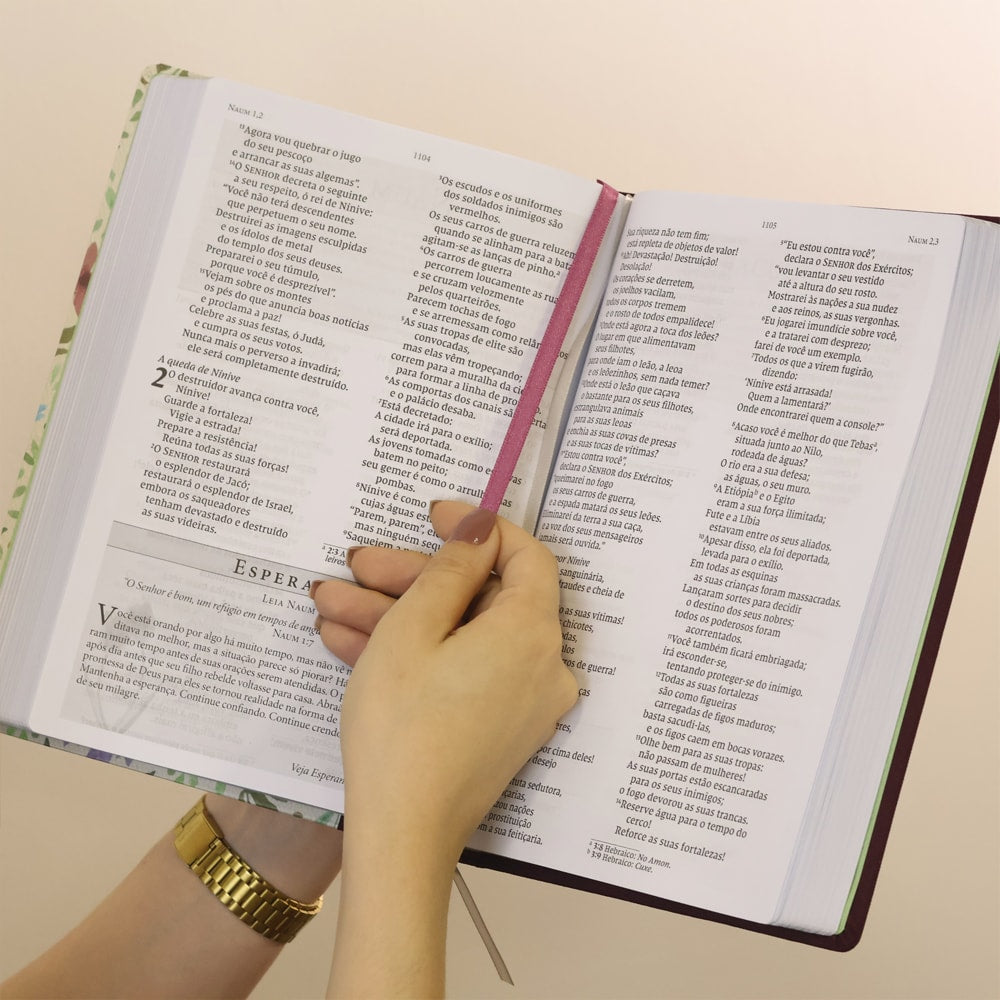 NAUM 1,2
1104
¹³Agora vou quebrar o jugo
do seu pescoço
e arrancar as suas algemas”.
¹⁴O SENHOR decreta o seguinte
a seu respeito, ó rei de Nínive:
“Você não terá descendentes
que perpetuem o seu nome.
Destruirei as imagens esculpidas
e os ídolos de metal
do templo dos seus deuses.
Prepararei o seu túmulo,
porque você é desprezível”.
¹⁵Vejam sobre os montes
os pés do que anuncia boas notícias
e proclama a paz!
Celebre as suas festas, ó Judá,
e cumpra os seus votos.
Nunca mais o perverso a invadirá;
ele será completamente destruído.
A queda de Nínive
2 O destruidor avança contra você,
Nínive!
Guarde a fortaleza!
Vigie a estrada!
Prepare a resistência!
Reúna todas as suas forças!
²O SENHOR restaurará
o esplendor de Jacó;
restaurará o esplendor de Israel,
embora os saqueadores
tenham devastado e destruído
as suas videiras.
³Os escudos e os uniformes
dos soldados inimigos são
vermelhos.
Os seus carros de guerra reluzem
quando se alinham para a
agitam-se as lanças de pinho.ᵃ
⁴Os carros de guerra
percorrem loucamente as
e se cruzam velozmente
pelos quarteirões.
Parecem tochas de fogo
e se arremessam como
⁵As suas tropas de elite são
convocadas,
mas elas vêm tropeçando;
correm para a muralha da
para formar a linha de
⁶As comportas dos canais são
e o palácio desaba.
⁷Está decretado:
A cidade irá para o exílio;
será deportada.
As jovens tomadas como
batem no peito;
seu gemer é como o
pombas.
⁸Nínive é como
cujas águas
“Parem, parem”,
mas ninguém
⁹Saqueiem
ᵃ 2:3
ESPERA
LEIA NAUM
“O Senhor é bom, um refúgio em tempos de
NAUM 1:7
Você está orando por algo há muito tempo, mas não vê
ditava no melhor, mas a situação parece só piorar?
ram muito tempo antes de suas orações serem atendidas. O
após dia antes que seu filho rebelde voltasse para casa.
promessa de Deus para eles se tornou realidade na forma de
Mantenha a esperança. Continue confiando. Continue
de seu milagre.
Veja
1105
NAUM 2,3
Sua riqueza não tem fim;
está repleta de objetos de valor!
Ah! Devastação! Destruição!
Desolação!
Os corações se derretem,
os joelhos vacilam,
todos os corpos tremem
e o rosto de todos empalidece!
Onde está agora a toca dos leões?
O lugar em que alimentavam
seus filhotes,
para onde iam o leão, a leoa
e os leõezinhos, sem nada temer?
Onde está o leão que caçava
o bastante para os seus filhotes,
estrangulava animais
para as suas leoas
e enchia as suas covas de presas
e as suas tocas de vítimas?
“Estou contra você”,
declara o SENHOR dos Exércitos;
“queimarei no fogo
os seus carros de guerra,
e a espada matará os seus leões.
Eliminarei da terra a sua caça,
e a voz dos seus mensageiros
jamais será ouvida.”
por Nínive
sanguinária,
fraudes e cheia de
as suas vítimas!
chicotes,
de guerra!
por cima deles!
desejo
sedutora,
nações
prostituição
a sua feitiçaria.
⁵“Eu estou contra você”,
declara o SENHOR dos Exércitos;
“vou levantar o seu vestido
até a altura do seu rosto.
Mostrarei às nações a sua nudez
e aos reinos, as suas vergonhas.
⁶Eu jogarei imundície sobre você,
e a tratarei com desprezo;
farei de você um exemplo.
⁷Todos os que a virem fugirão,
dizendo:
‘Nínive está arrasada!
Quem a lamentará?’
Onde encontrarei quem a console?”
⁸Acaso você é melhor do que Tebasᵃ,
situada junto ao Nilo,
rodeada de águas?
O rio era a sua defesa;
as águas, o seu muro.
⁹A Etiópiaᵇ e o Egito
eram a sua força ilimitada;
Fute e a Líbia
estavam entre os seus aliados.
¹⁰Apesar disso, ela foi deportada,
levada para o exílio.
Em todas as esquinas
as suas crianças foram massacradas.
Lançaram sortes para decidir
o destino dos seus nobres;
todos os poderosos foram
acorrentados.
¹¹Você também ficará embriagada;
irá esconder-se,
tentando proteger-se do inimigo.
¹²Todas as suas fortalezas
são como figueiras
carregadas de figos maduros;
basta sacudi-las,
e os figos caem em bocas vorazes.
¹³Olhe bem para as suas tropas:
não passam de mulheres!
As suas portas estão escancaradas
para os seus inimigos;
o fogo devorou as suas trancas.
¹⁴Reserve água para o tempo do
cerco!
Reforce as suas fortalezas!
ᵃ 3:8 Hebraico: No Amon.
ᵇ 3:9 Hebraico: Cuxe.